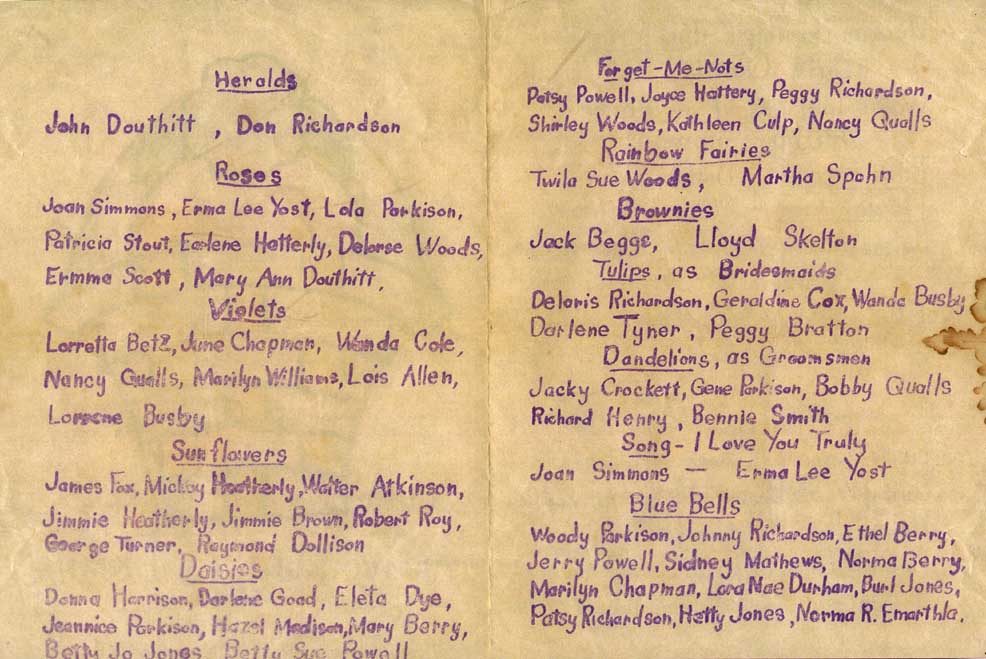 Heralds
John Douthitt , Don Richardson
Roses
Joan Simmons , Erma Lee Yost, Lola Parkison,
Patricia Stout, Earlene Hatterly, Delorse Woods,
Ermma Scott , Mary Ann Douthitt,
Violets
Lorretta Betz, June Chapman, Wanda Cole,
Nancy Qualls, Marilyn Williams, Lois Allen,
Lorrene Busby
Sunflowers
James Fox, Mickey Heatherly, Walter Atkinson,
Jimmie Heatherly, Jimmie Brown, Robert Roy,
George Turner, Raymond Dollison
Daisies
Donna Harrison, Darlene Goad, Eleta Dye,
Jeannice Parkison, Hazel Madison, Mary Berry,
Betty Jo Jones Betty Sue Powell
Forget-Me-Nots
Patsy Powell, Joyce Hattery, Peggy Richardson,
Shirley Woods, Kathleen Culp, Nancy Qualls
Rainbow Fairies
Twila Sue Woods, Martha Spahn
Brownies
Jack Beggs, Lloyd Skelton
Tulips, as Bridesmaids
Deloris Richardson, Geraldine Cox, Wanda Busby
Darlene Tyner, Peggy Bratton
Dandelions, as Groomsmen
Jacky Crockett, Gene Parkison, Bobby Qualls
Richard Henry, Bennie Smith
Song - I Love You Truly
Joan Simmons — Erma Lee Yost
Blue Bells
Woody Parkison, Johnny Richardson, Ethel Berry,
Jerry Powell, Sidney Mathews, Norma Berry,
Marilyn Chapman, Lora Nae Durham, Burl Jones,
Patsy Richardson, Hatty Jones, Norma R. Emarthla.